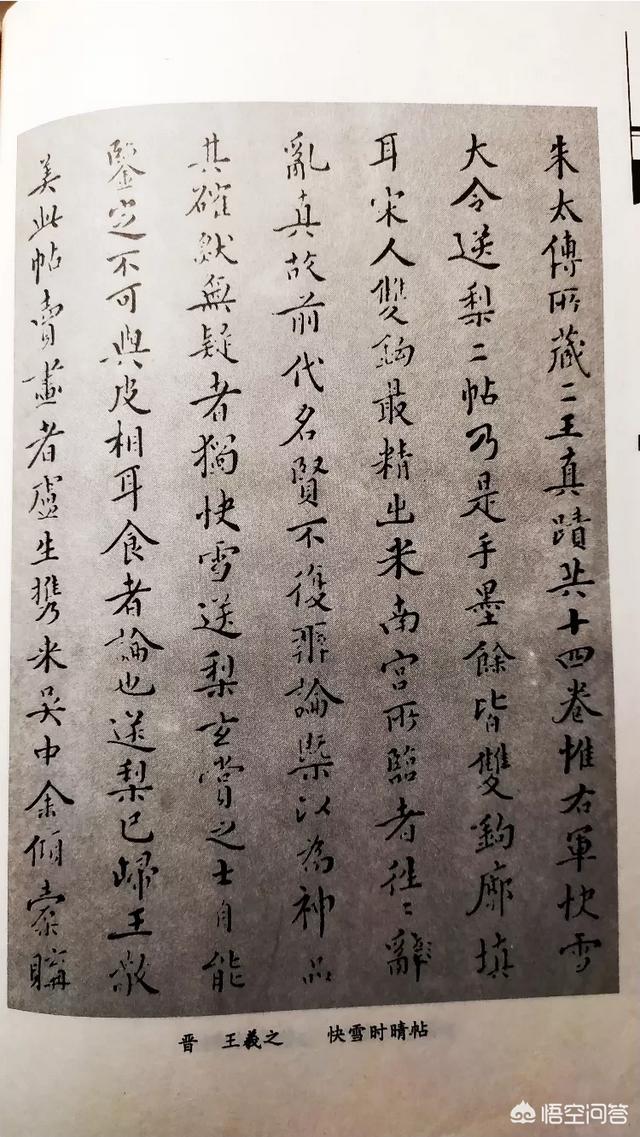 朱太傅所蔵二王真蹟共十四卷惟右軍快雪
大令送梨二帖乃是手墨餘皆雙鈎廓填
耳宋人雙鈎最精出米南宮所臨者往〻
亂真故前代名賢不復辨論槩以為神品
其確然無疑者獨快雪送梨玄賞之士自能
鑒定不可與皮相耳食者論也送梨已歸王敬
美此帖賣畫者盧生攜來吳中余傾橐購
晋 王羲之 快雪时晴帖
悟空问答